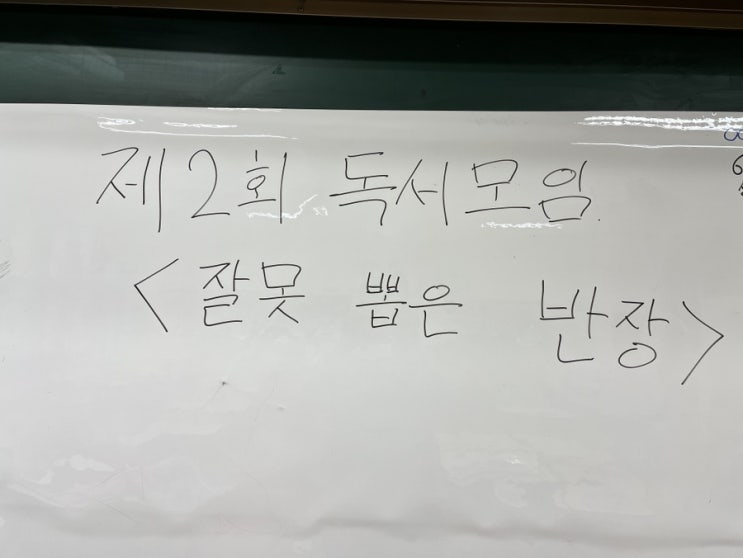 제2회 독서모임
<잘못 뽑은 반장>